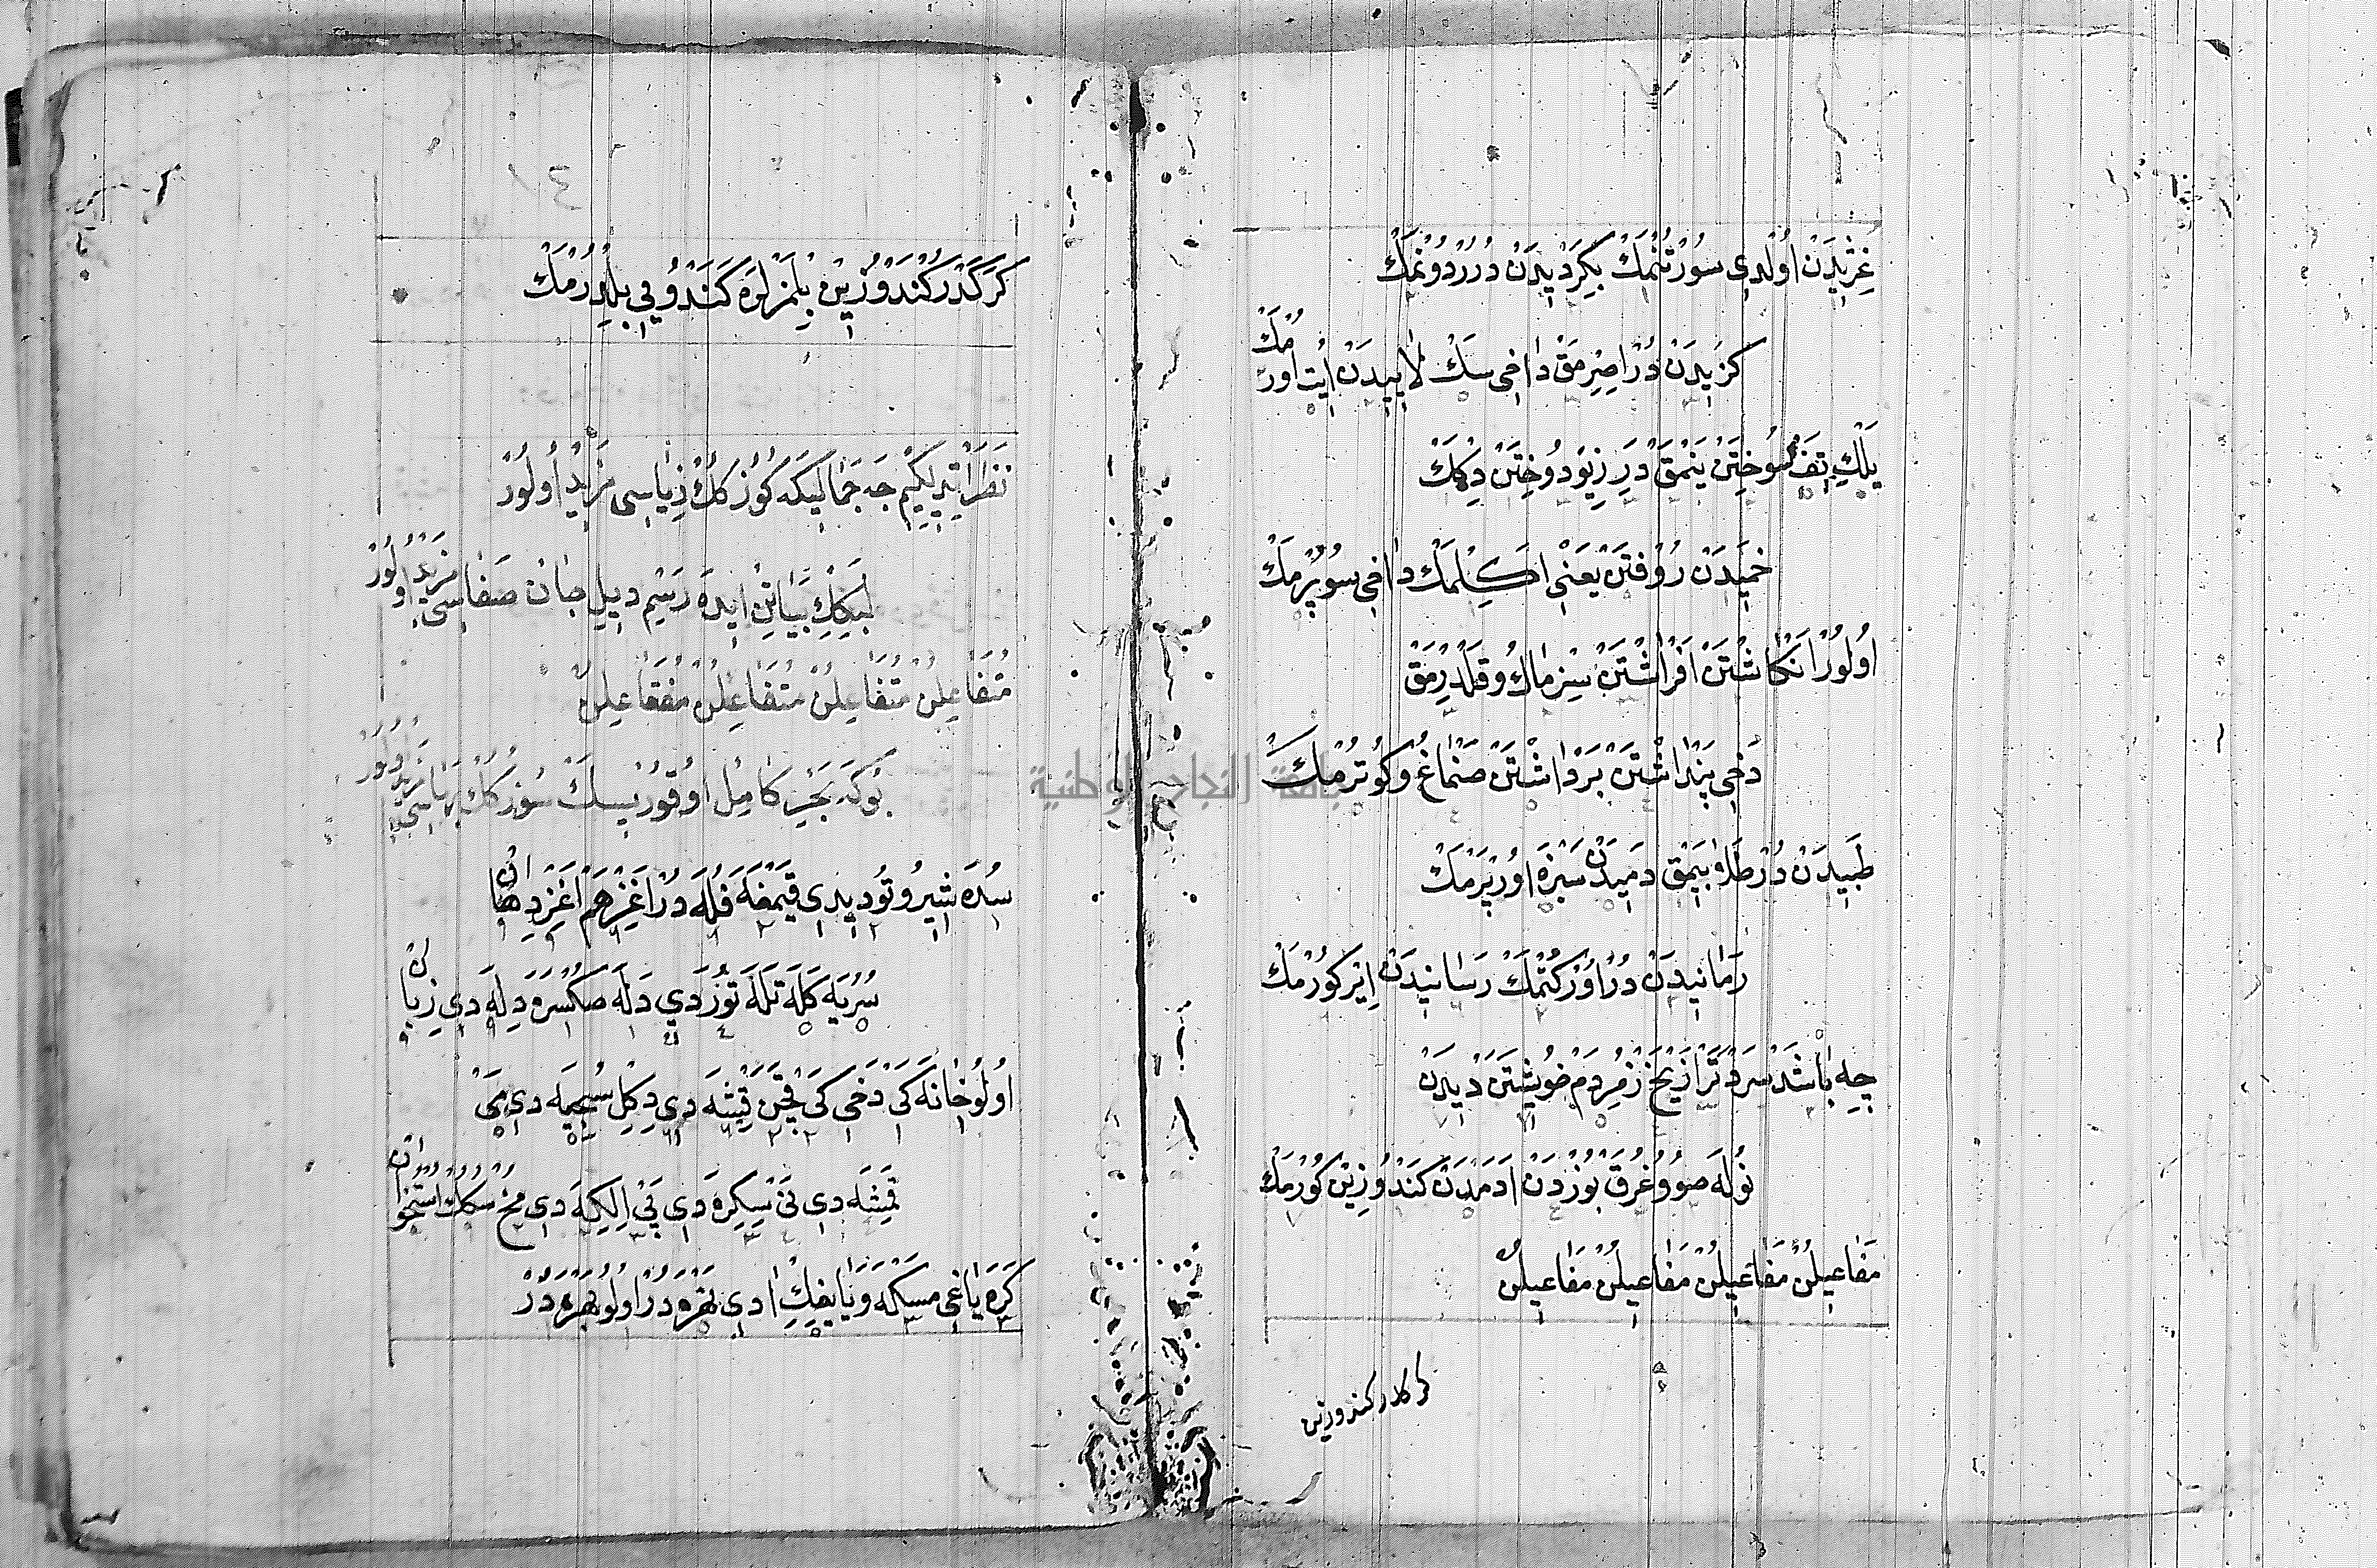 غژیدن اولدی سورتنمك بكردیدن دررد ونمك
كزیدن در اصرمق داخی سك لاییدن ایت اورمك
یلك تف سوختن ینمق درزیو دوختن دكمك
خمیدن روفتن یعنی اكلمك داخی سوپرمك
اولور انكاشتن افراشتن سزماك و قلدرمق
دخی پنداشتن برداشتن صنماغ و كوترمك
طبیدن در طلابیمق دمیدن سبزه اوربرمك
رمانیدن در اوركتمك رسانیدن ایركورمك
چه باشد سرد تر از یخ ز مردم خویشتن دیدن
نوله صووغرق بوزدن ادمدن كندوزین كورمك
مفاعیلن مفاعیلن مفاعیلن مفاعیلن
كركدر كندوزین
١٤
كركدر كندوزین بلمزلره كندویی بلدرمك
نظر اتدیلكیم جه جمالیكه كوزكك ضیاسی مزید اولور
لبكك بیاتن ایده رسیم دییل جان صفاسی مزید اولور
متفاعلن متفاعلن متفاعلن متفاعلن
بوكه بحر كامل اوقوریسك سوزكك بهاسی مزید اولور
سده شیر و تو دیدی قیمغه فله در اغز هم اغز دهان
سریه كله تله توز دی دله صكسره دله دی زبان
اولو خانه كی دخی كی قچن قیشه دی دكل سجیمه دی می
قمیشه دی نی سیكره دی پی الكه دی مخ سكك استخوان
كره یاغی مسكه و نایفك ادی بهره در اولو بهره در
جامعة النجاح الوطنية